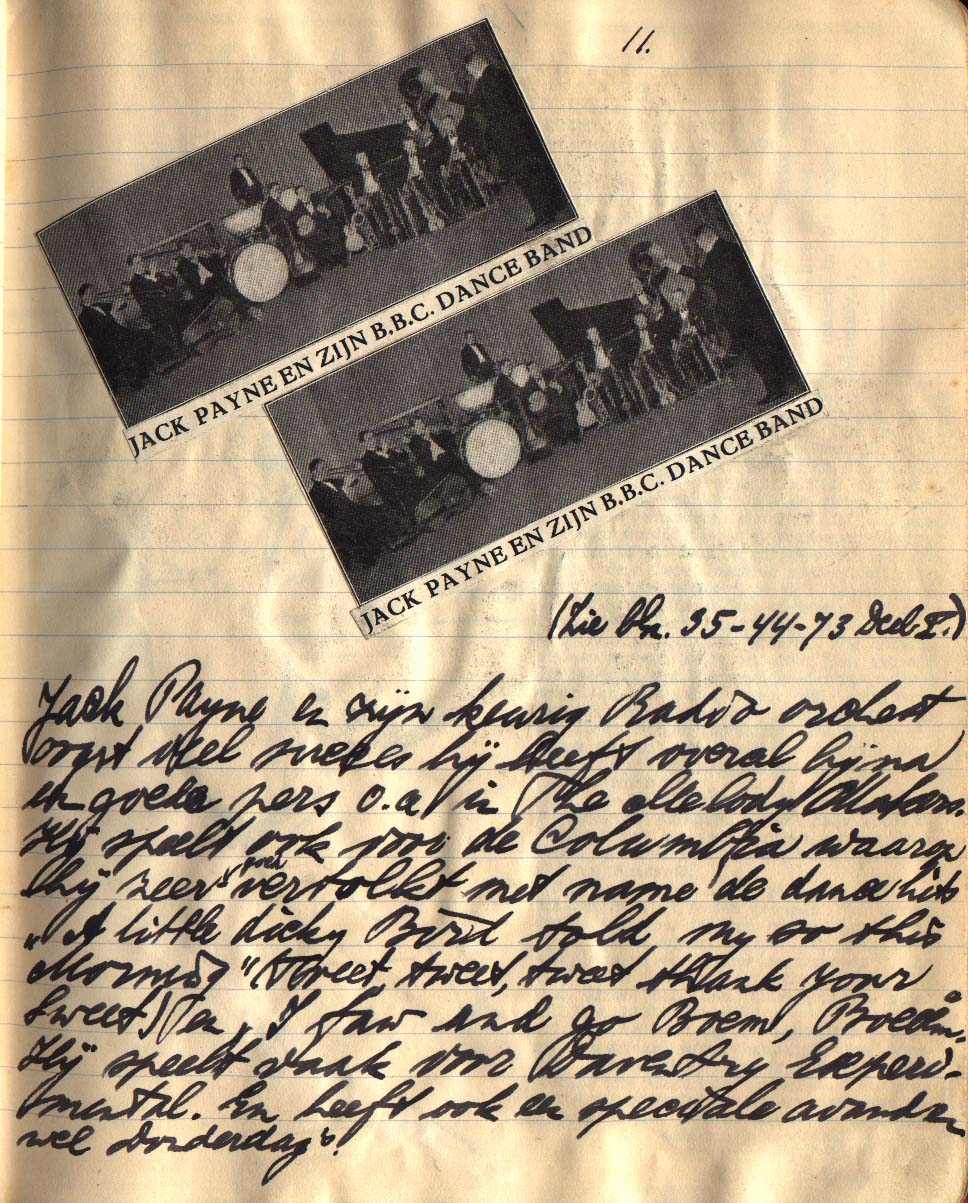 11.
JACK PAYNE EN ZIJN B.B.C. DANCE BAND
JACK PAYNE EN ZIJN B.B.C. DANCE BAND
(Zie blz. 35-44-73 Deel I.)
Jack Payne en zijn keurig Radio orchest
oogst veel succes hij heeft overal bijna
en goede pers o.a. in The Melody
Hij speelt ook voor de Columbia waarop
hij zeer goed vertolkt met name de dance hits
"A little dicky Bird told my so this
Morning" (Tweet, tweet, tweet thank your
Sweet) en, I faw and go Boem, Boeem.
Hij speelt vaak voor Daventry Experi-
mental. En heeft ook een speciale avonden
wel Donderdag's.